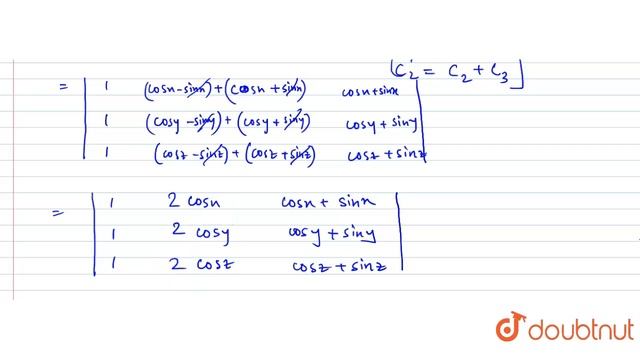 [C₂' = C₂ + C₃]
= | 1 (cosx - sinx) + (cosx + sinx) cosx + sinx |
| 1 (cosy - siny) + (cosy + siny) cosy + siny |
| 1 (cosz - sinz) + (cosz + sinz) cosz + sinz |
= | 1 2 cosx cosx + sinx |
| 1 2 cosy cosy + siny |
| 1 2 cosz cosz + sinz |
doubtnut